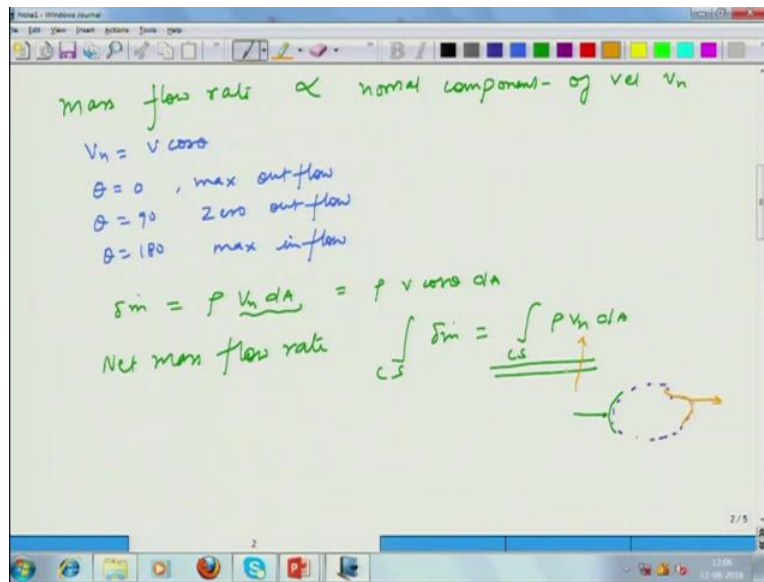 Note1 - Windows Journal
File Edit View Insert Actions Tools Help
mass flow rate ∝ normal component- of vel Vn
Vn = V cosθ
θ = 0 , max outflow
θ = 90 Zero outflow
θ = 180 max inflow
δṁ = ρ Vn dA = ρ V cosθ dA
Net mass flow rate ∫CS δṁ = ∫CS ρ Vn dA
2/5
2
12:06
12-08-2016